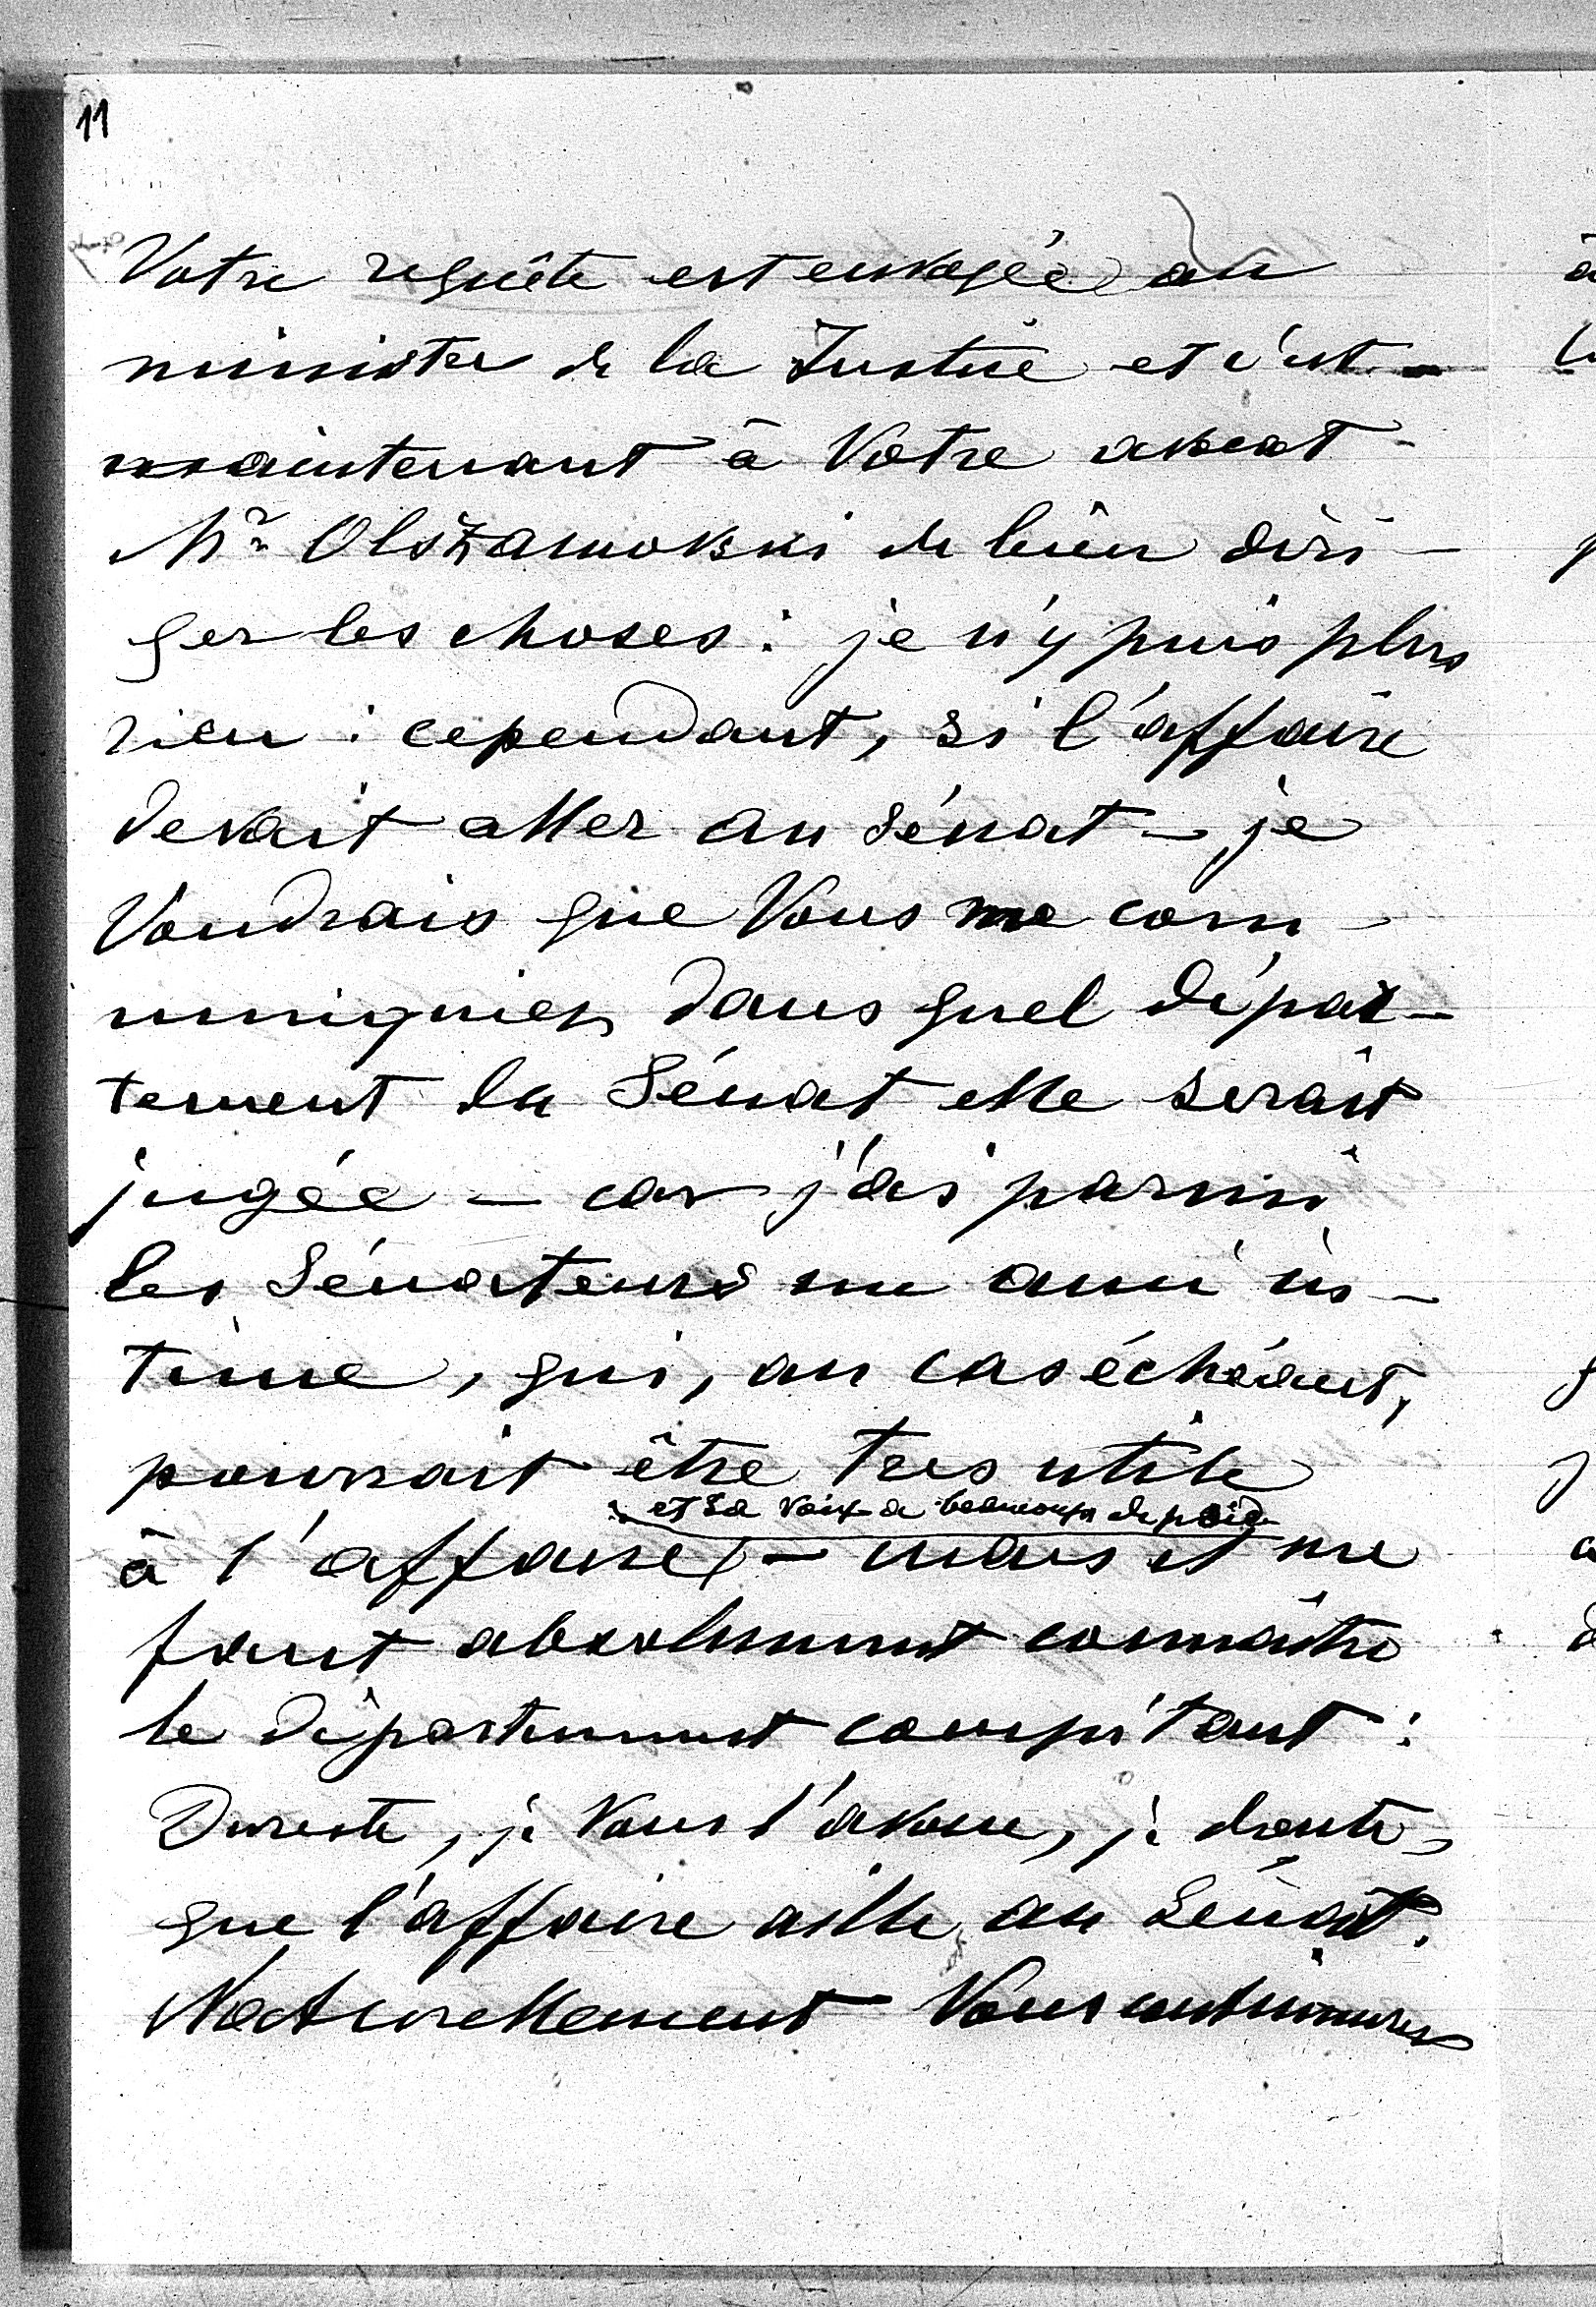 11
Votre requête est envoyée au
ministre de la Justice et c'est
maintenant à Votre avocat
Mr Olszamowski de bien diri-
ger les choses: je n'y puis plus
rien: cependant, si l'affaire
devait aller au Sénat - je
Voudrais que Vous me com-
muniquiez dans quel dépar-
tement du Sénat elle serait
jugée - car j'ai parmi
les Sénateurs un ami in-
time, qui, au cas échéant,
pourrait être tres utile
et sa voix a beaucoup de poid
à l'affaire - mais il me
faut absolument connaître
le département compétant:
Du reste, je Vous l'avoue, je doute
que l'affaire aille au Sénat.
Naturellement Vous continuerez